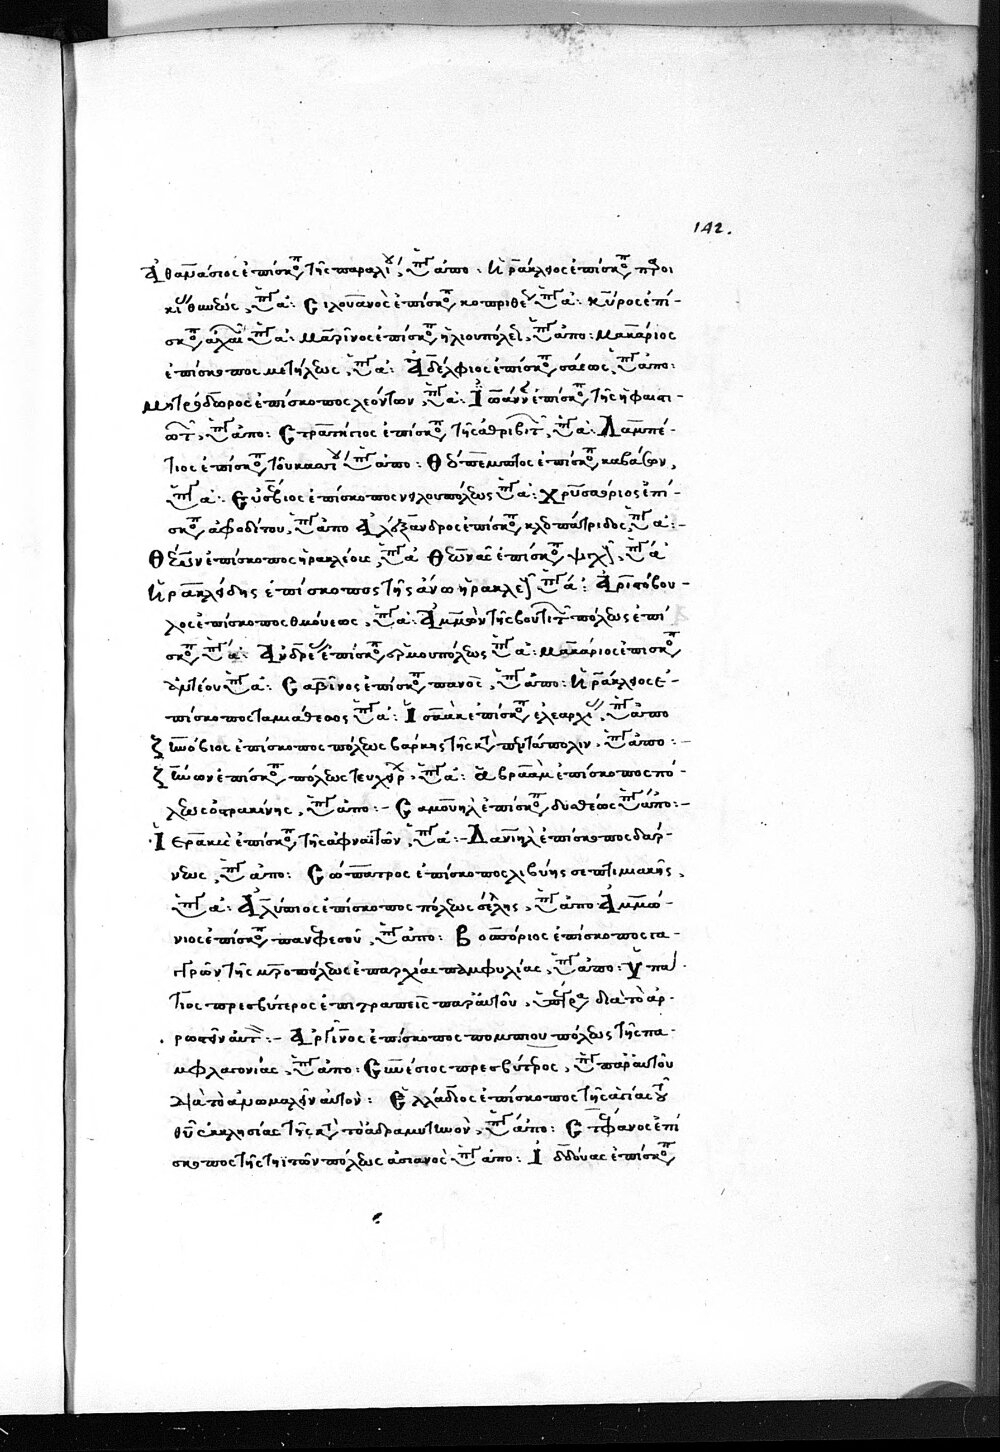 142.
Ἀθανάσιος ἐπίσκοπ τῆς παραλίου, ὑπ ἀπο : Ἡράκλειος ἐπίσκοπ
σ ὑπ ἀ: Σιλουανὸς ἐπίσκοπ κοπρίθε ὑπ ἀ: Κῦρος ἐπί-
σκοπ ἀχαι ὑπ ἀ: Μαρῖνος ἐπίσκοπ ἡλιουπόλε, ὑπ ἀπο: Μακάριος
ἐπίσκοπος μετήλεως, ὑπ ἀ: Ἀδέλφιος ἐπίσκοπ σάεως, ὑπ ἀπο:
Μητρόδωρος ἐπίσκοπος λεόντων, ὑπ ἀ: Ἰωάνν ἐπίσκοπ τῆς ἡφαιστ-
ὑπ ἀπο: Στρατήγιος ἐπίσκοπ τῆς ἀθριβιτ, ὑπ ἀ: Λαμπέ-
τιος ἐπίσκοπ τοῦ κασίου ὑπ ἀπο: Θεόπεμπτος ἐπίσκοπ καβάσων,
ὑπ ἀ: Εὐσέβιος ἐπίσκοπος νειλουπόλεως ὑπ ἀ: Χρυσαόριος ἐπί-
σκοπ ἀφροδίτου, ὑπ ἀπο Ἀλέξανδρος ἐπίσκοπ κλεοπάτριδος ὑπ ἀ:-
Θέων ἐπίσκοπος ἡρακλέους, ὑπ ἀ Θεωνᾶς ἐπίσκοπ ψιγχ, ὑπ ἀ
Ἡρακλείδης ἐπίσκοπος τῆς ἄνω ἡρακλε ὑπ ἀ: Ἀριστόβου-
λος ἐπίσκοπος θμούεως, ὑπ ἀ: Ἀμμων τῆς βουτιτ πόλεως ἐπί
σκοπ ὑπ ἀ: Ἀνδρέας ἐπίσκοπ ἑρμουπόλεως ὑπ ἀ: Μακάριος ἐπισκοπ
ἀντέου ὑπ ἀ: Σαβῖνος ἐπίσκοπ πανὸς, ὑπ ἀπο: Ἡράκλειος ἐ-
πίσκοπος ταμιάθεως ὑπ ἀ: Ἰσαὰκ ἐπίσκοπ ἐλεαρχίας, ὑπ ἀπο
Ζηνόβιος ἐπίσκοπος πόλεως βάρκης τῆς κτ πεντάπολιν, ὑπ ἀπο:-
Ζήνων ἐπίσκοπ πόλεως τευχερ, ὑπ ἀ: Ἀβραὰμ ἐπίσκοπος πό-
λεως ὀστρακίνης, ὑπ ἀπο:- Σαμουὴλ ἐπίσκοπ δυσθέως ὑπ ἀπο:-
Ἱερακὶς ἐπίσκοπ τῆς ἀφναϊτῶν, ὑπ ἀ:- Δανιὴλ ἐπίσκοπος δαρ-
νεως, ὑπ ἀπο: Σώπατρος ἐπίσκοπος λιβύης σεπτιμιακῆς,
ὑπ ἀ: Ἀλύπιος ἐπίσκοπος πόλεως σέλης, ὑπ ἀπο Ἀμμώ-
νιος ἐπίσκοπ πανεφεσοῦ, ὑπ ἀπο: Βοσπόριος ἐπίσκοπος γα-
γγρῶν τῆς μητροπόλεως ἐπαρχίας παμφυλίας, ὑπ ἀπο: Ὑπα
τιος πρεσβύτερος ἐπιτραπεὶς παρ' αὐτοῦ, ὑπέγραψα διὰ τὸ ἀρ-
ρωστεῖν αὐτ:- Ἀργῖνος ἐπίσκοπος πομπιουπόλεως τῆς πα-
μφλαγονίας, ὑπ ἀπο: Συνέσιος πρεσβύτερος, ὑπ παρ' αὐτοῦ
διὰ τὸ ἀνωμαλεῖν αὐτὸν: Ἑλλάδιος ἐπίσκοπος τῆς ἁγίας τοῦ
θυ ἐκκλησίας τῆς κτ τὸ ἀδραμύτιον, ὑπ ἀπο: Στέφανος ἐπί
σκοπος τῆς τηϊτῶν πόλεως ἀσιανὸς ὑπ ἀπο: Ἰδδούας ἐπίσκοπ